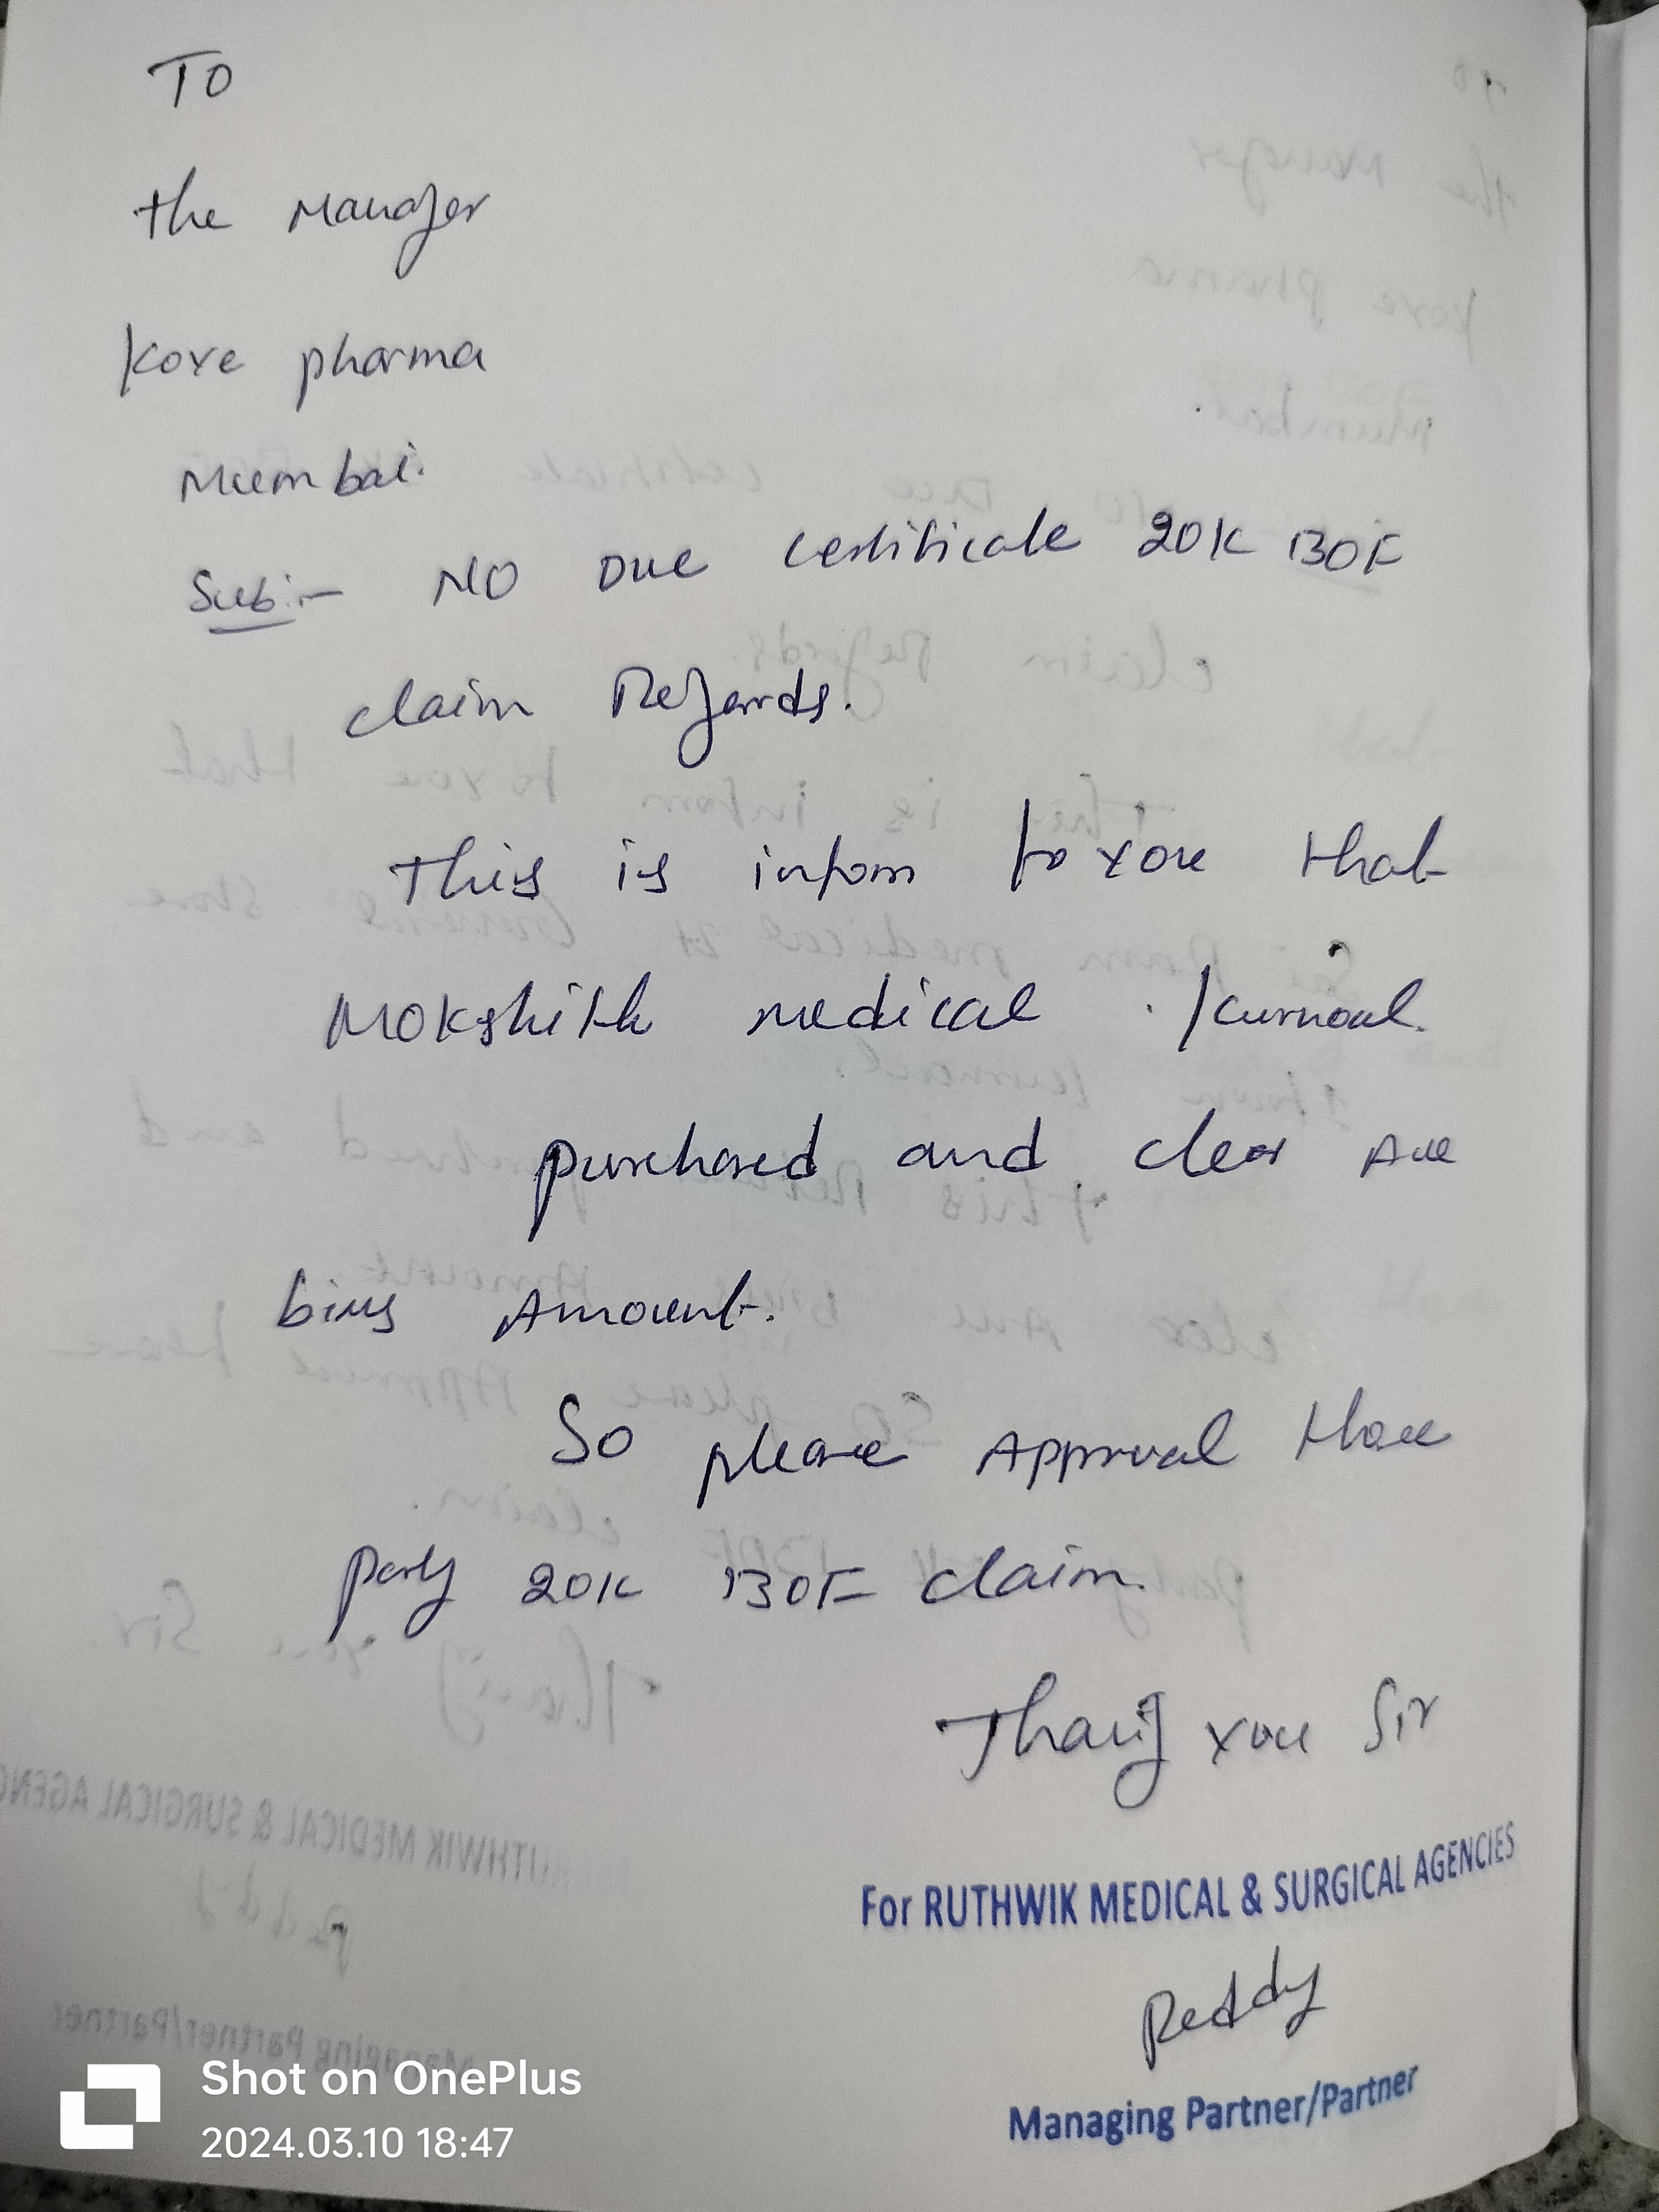 TO
the Manager
Kore pharma
Mumbai.
Sub:- NO Due certificate 20K BOF
claim Regards.
This is inform to you that
Mokshith medical . Kurnoul.
purchased and clear All
bills Amount.
So please Approval these
party 20K BOF claim.
Thanq you Sir
For RUTHWIK MEDICAL & SURGICAL AGENCIES
Reddy
Managing Partner/Partner
Shot on OnePlus
2024.03.10 18:47